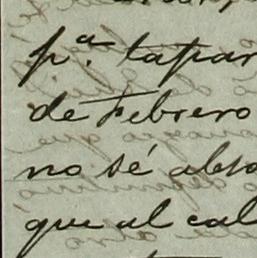 p.ª tapar
de Febrero
no sé abso
que al cal